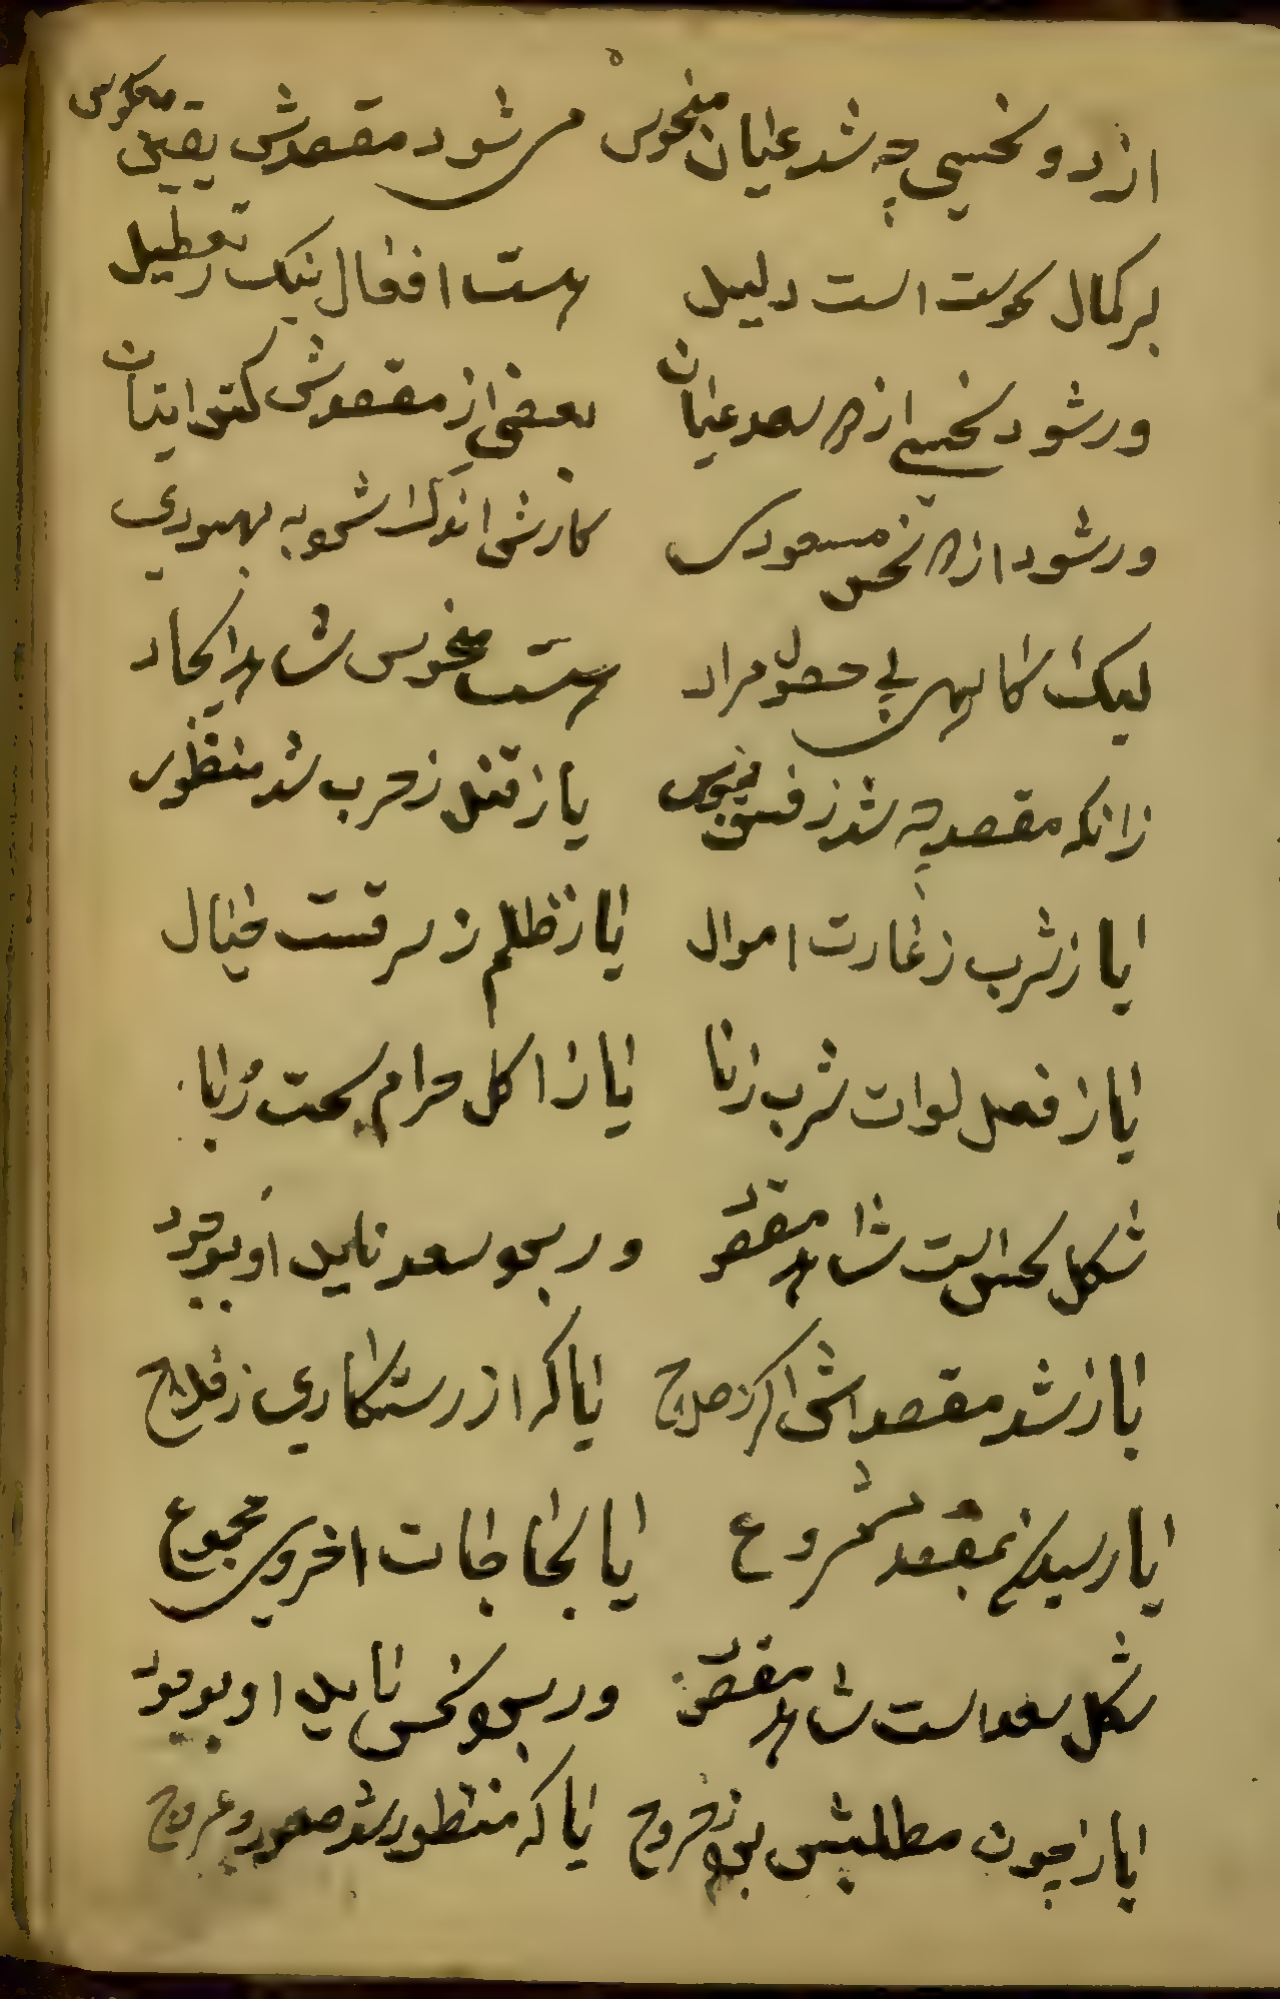 از دو نحسی چه شد عیان منحوس می شود مقصدش یقین معکوس
بر کمال نحوست است دلیل هست افعال نیک را تعطیل
ور شود نحسی از دو سعد عیان بعضی از مقصدش کنش اتیان
ور شود از دو نحس مسعودی کارش اندک شو به بهبودی
لیک گاهی پی حصول مراد هست منحوس شاهد ایجاد
زانکه مقصد چه شد ز فسق نفوس یا ز قتل ز حرب شد منظور
یا ز شرب ز غارت اموال یا ز ظلم ز سرقست خیال
یا ز فعل لوات شرب زنا یا ز اکل حرام سحت ربا
شکل نحس است شاهد مقصود ور بجو سعد ناید او بوجود
یا ز شد مقصدش اگر ز صلاح یا که از رستکاری ز فلاح
یا رسیدن بمقصد مشروع یا بحاجات اخروی مجموع
شکل سعد است شاهد مقصود ور بجو نحس ناید او بوجود
یا ز چون مطلبش بود ز خروج یا که منظور شد صعود و عروج